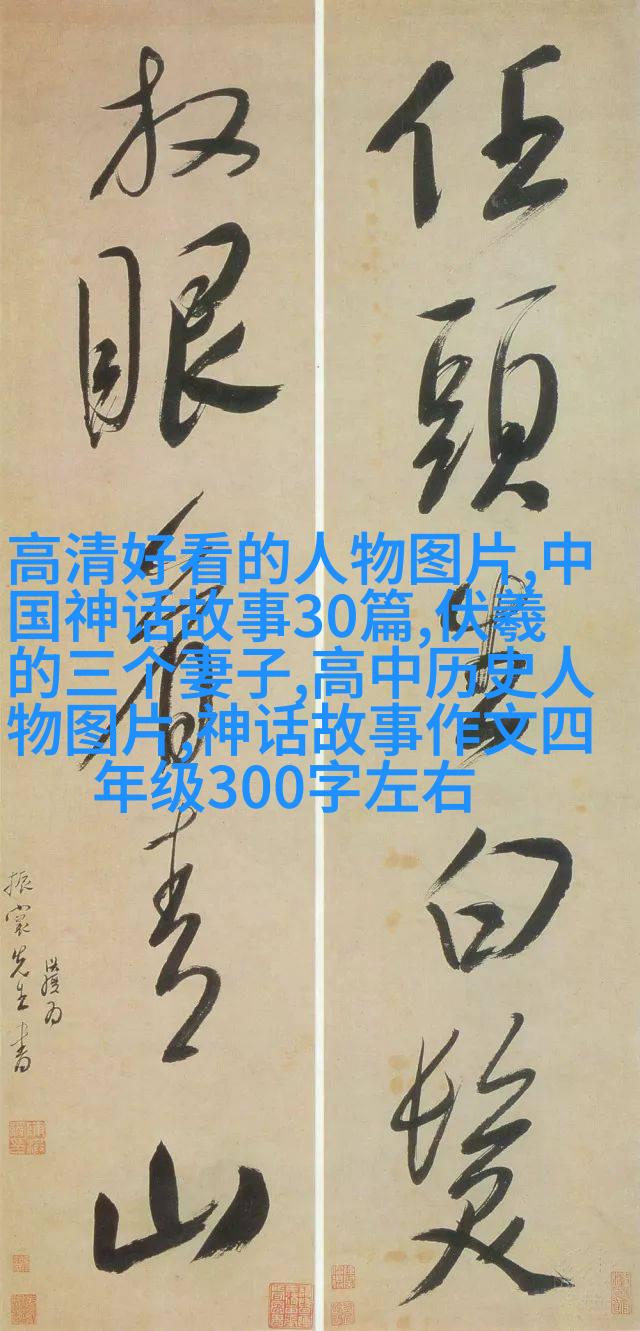 任頭生白髮
放眼看青山
振裳先生書
高清好看的人物图片,中
国神话故事30篇,伏羲
的三个妻子,高中历史人
物图片,神话故事作文四
年级300字左右